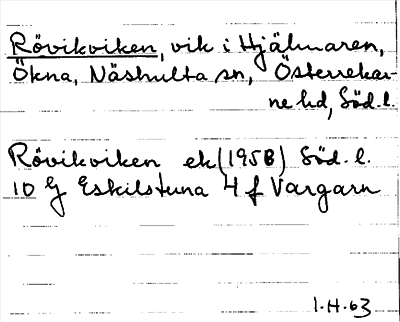 Rövikviken, vik i Hjälmaren,
Ökna, Näshulta sn, Österrekar-
ne hd, Söd. l.
Rövikviken ek (1958) Söd. l.
10 G Eskilstuna 4 f Vargarn
1.H.63